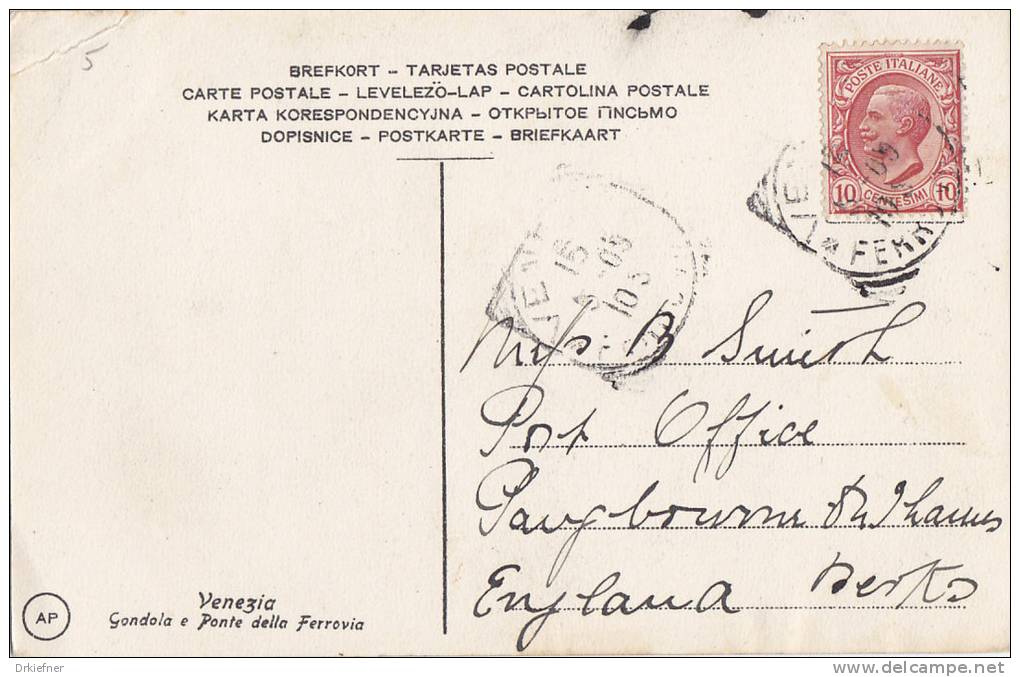 5
BREFKORT – TARJETAS POSTALE
CARTE POSTALE – LEVELEZÖ-LAP – CARTOLINA POSTALE
KARTA KORESPONDENCYJNA – ОТКРЫТОЕ ПИСЬМО
DOPISNICE – POSTKARTE – BRIEFKAART
POSTE ITALIANE
10 CENTESIMI 10
FERR
15
09
10 S
Miss B Smith
Post Office
Pangbourne on Thames
England Berks
AP
Venezia
Gondola e Ponte della Ferrovia
Drkiefner
http://www.delcampe.net